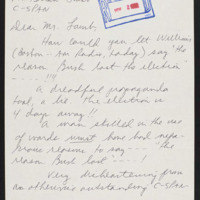 C-SPAN
Dear Mr. Lamb,
How could you let Williams
(Boston - Am Radio, today) say "the
reason Bush lost the election"
----!!!
A dreadful propaganda
tool, as the election is
4 days away!!
A man skilled in the use
of words must have had
reason to say --- the
reason Bush lost ----!
Very disheartening from
an otherwise outstanding C-Span